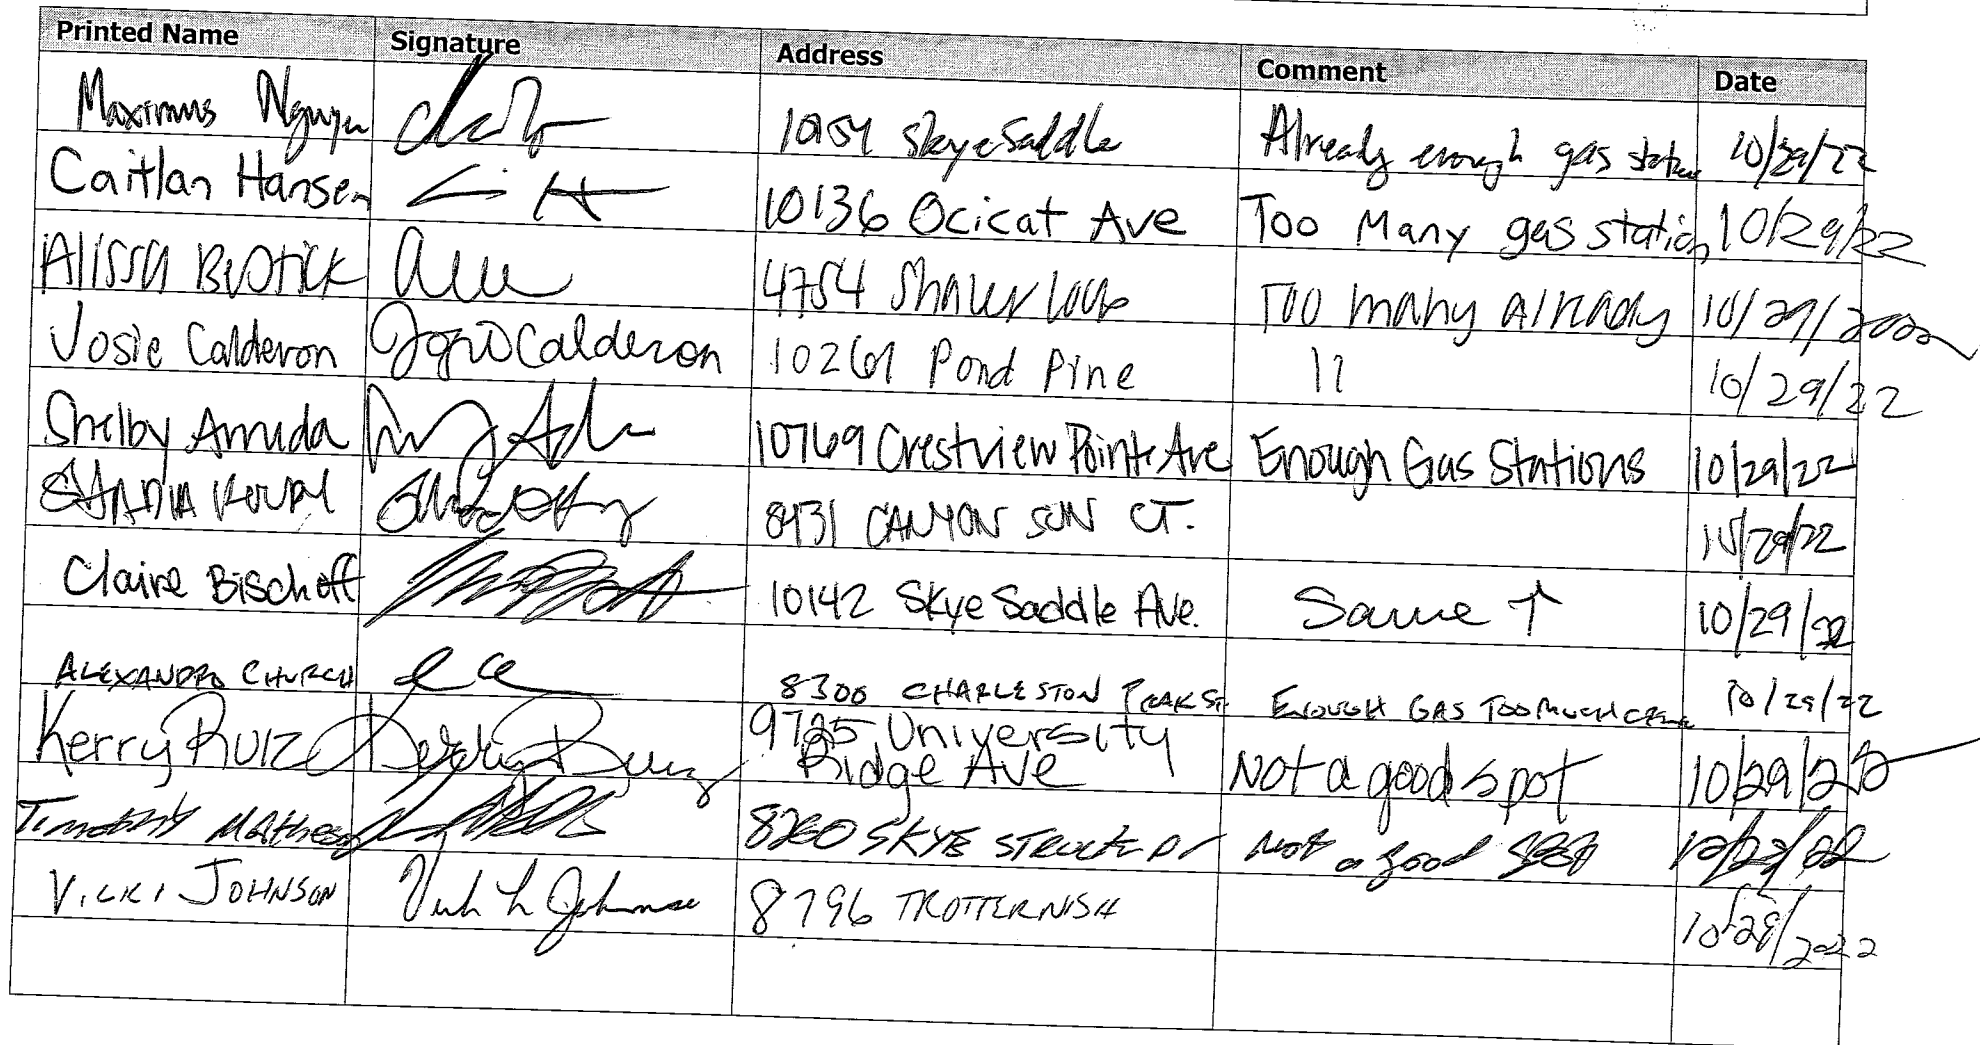 Printed Name Signature Address Comment Date
Maximus Nguyen 10154 Skye Saddle Already enough gas station 10/29/22
Caitlan Hansen 10136 Ocicat Ave Too Many gas station 10/29/22
Alissa 4754 Too many Already 10/29/2022
Josie Calderon Josie Calderon 10261 Pond Pine 11 10/29/22
Shelby Arruda 10769 Crestview Pointe Ave Enough Gas Stations 10/29/22
8431 CANYON SUN CT. 10/29/22
Claire Bischoff 10142 Skye Saddle Ave. Same ↑ 10/29/22
ALEXANDRO CHURCH 8300 CHARLESTON PEAK St ENOUGH GAS TOO MUCH 10/29/22
Kerry Ruiz 9725 University
Ridge Ave Not a good spot 10/29/22
Timothy 8260 SKYE Dr Not a good 10/29/22
VICKI JOHNSON Vicki L Johnson 8796 TROTTERNISH 10/29/2022